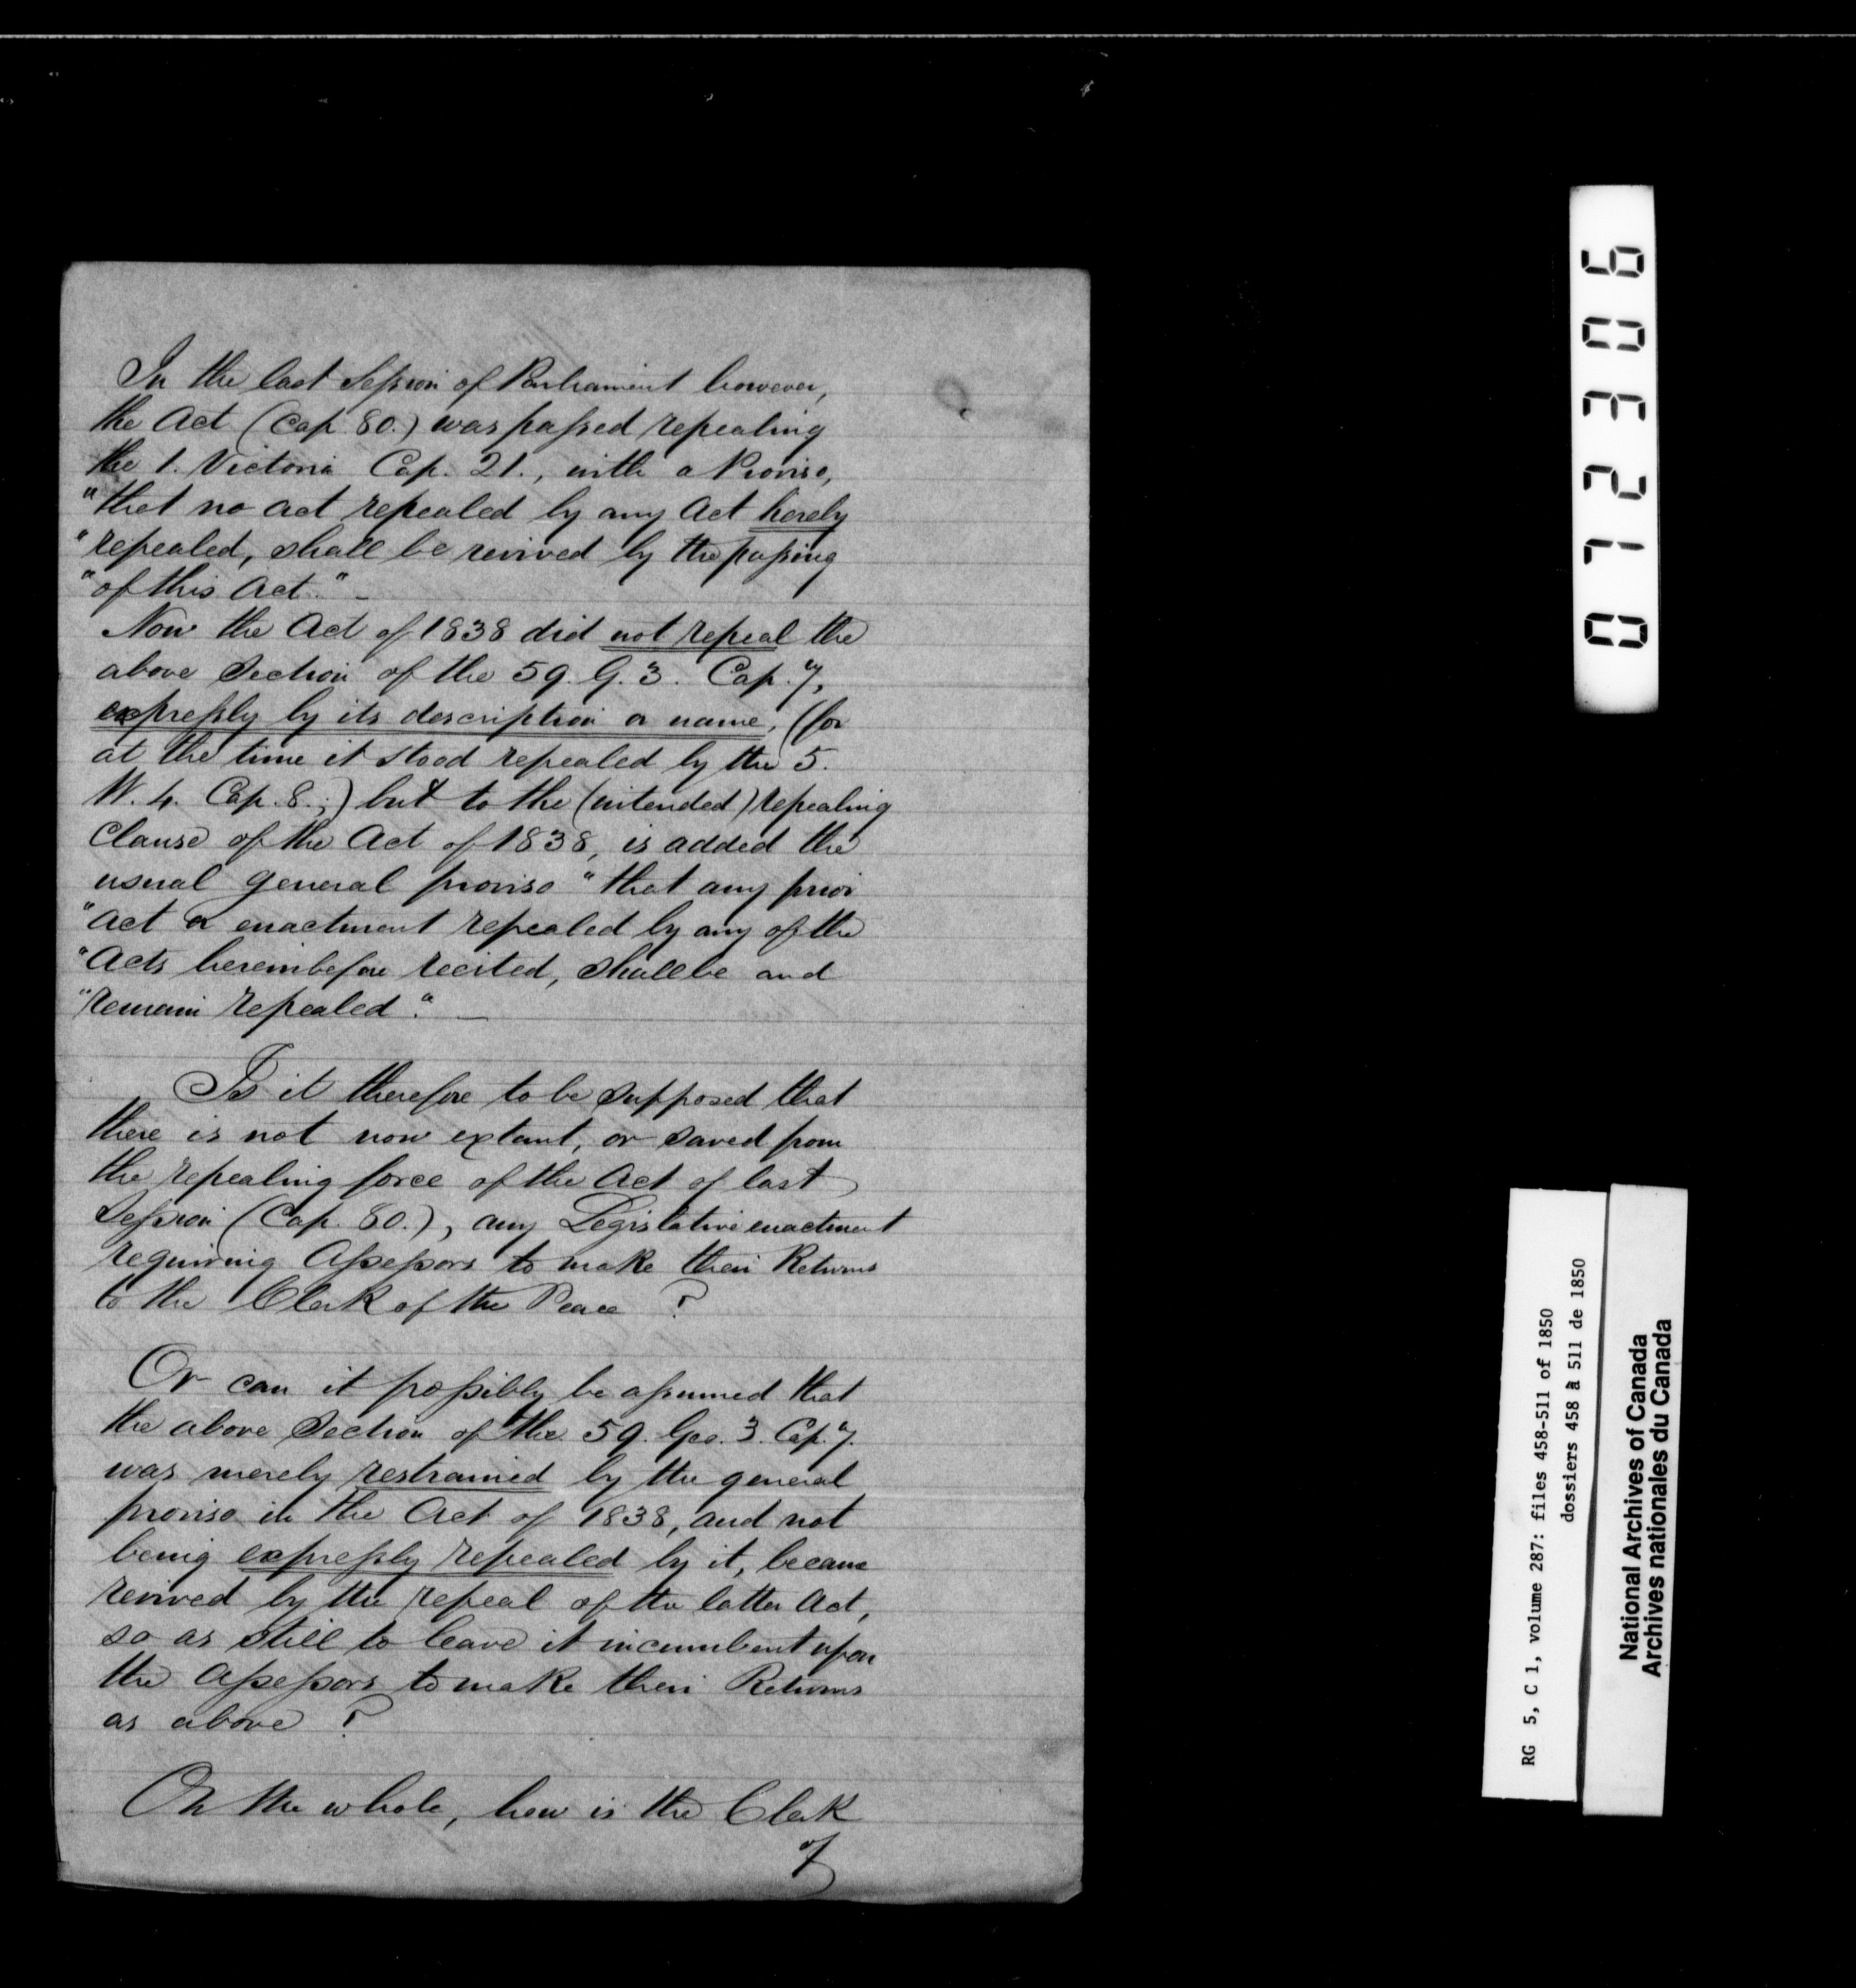 In the last Session of Parliament however,
the Act (Cap. 80.) was passed repealing
the 1. Victoria Cap. 21., with a Proviso,
"that no act repealed by any Act hereby
"repealed, shall be revived by the passing
"of this Act." -
Now the Act of 1838 did not repeal the
above Section of the 59. G. 3. Cap. 7,
expressly by its description or name, (for
at the time it stood repealed by the 5.
W. 4. Cap. 8.;) but to the (intended) repealing
Clause of the Act of 1838, is added the
usual general proviso "that any prior
"Act or enactment repealed by any of the
"Acts hereinbefore recited, shall be and
"remain repealed". -
Is it therefore to be supposed that
there is not now extant, or saved from
the repealing force of the Act of last
Session (Cap. 80.), any Legislative enactment
requiring Assessors to make their Returns
to the Clerk of the Peace ?
Or can it possibly be assumed that
the above Section of the 59. Geo. 3. Cap. 7.
was merely restrained by the general
proviso in the Act of 1838, and not
being expressly repealed by it, became
revived by the repeal of the latter Act,
so as still to leave it incumbent upon
the Assessors to make their Returns
as above ?
On the whole, how is the Clerk
of
072306
RG 5, C 1, volume 287: files 458-511 of 1850
dossiers 458 à 511 de 1850
National Archives of Canada
Archives nationales du Canada